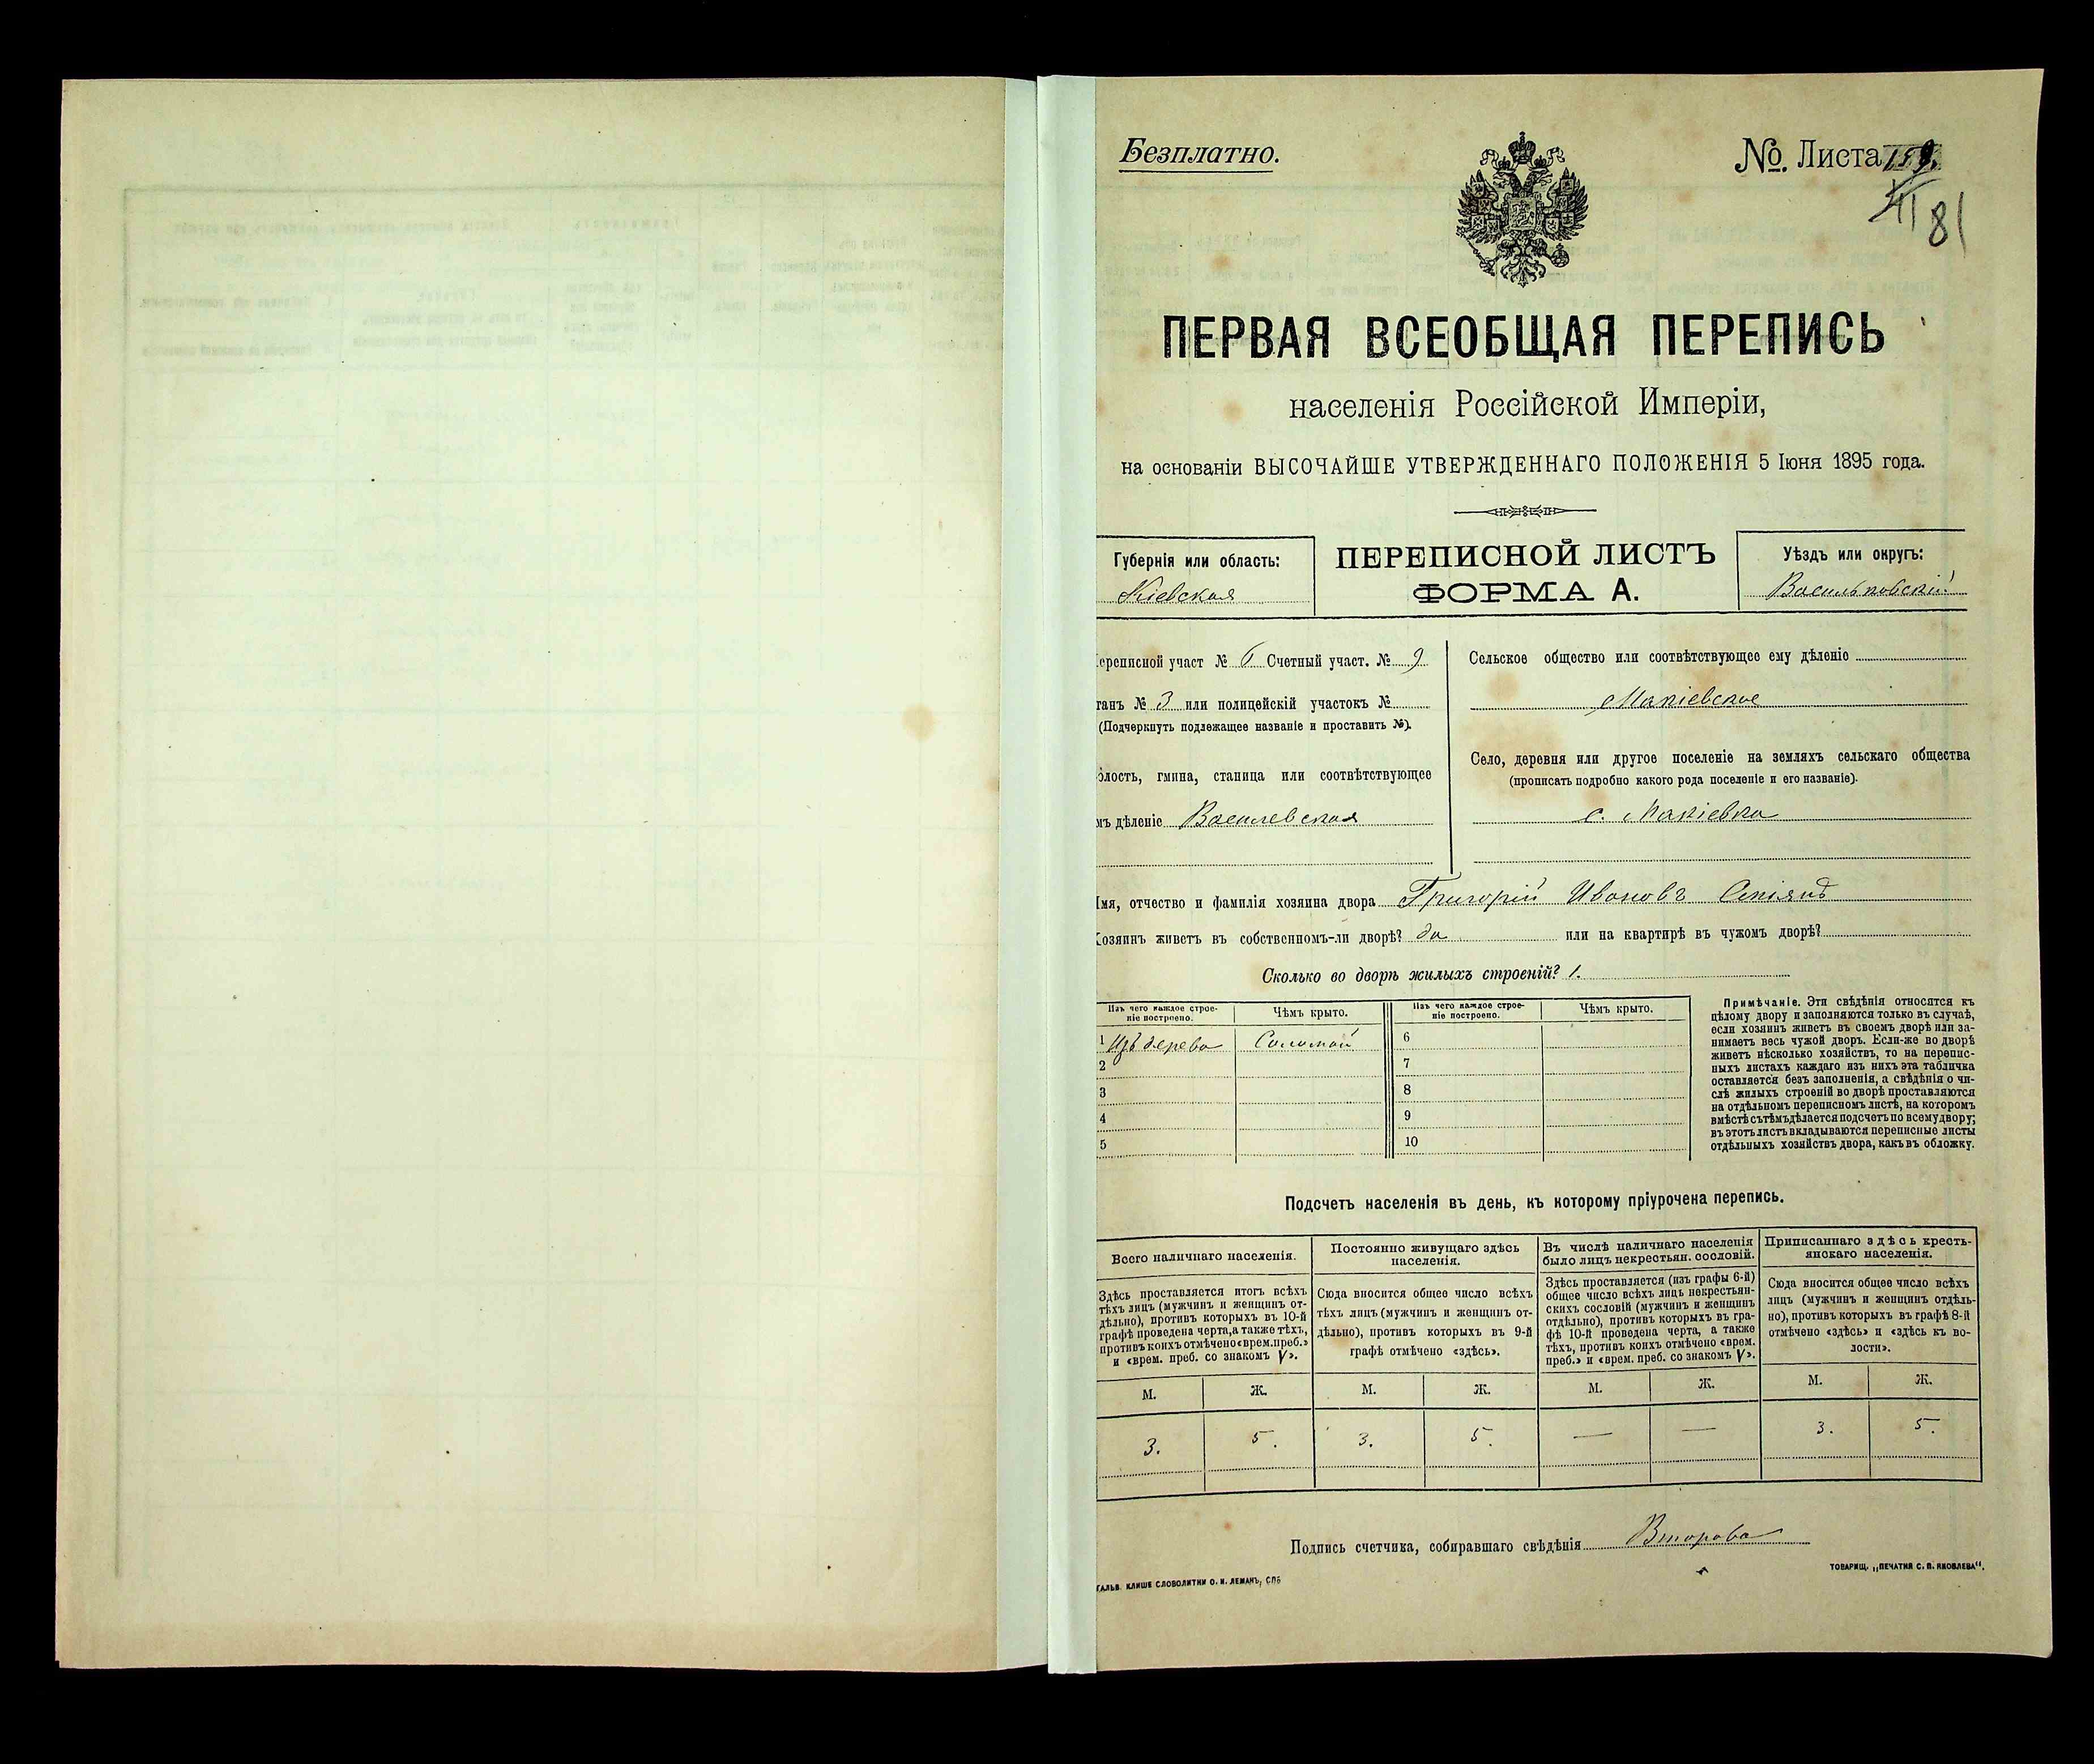 Безплатно.
№ Листа 159.
81
ПЕРВАЯ ВСЕОБЩАЯ ПЕРЕПИСЬ
населенія Россійской Имперіи,
на основаніи ВЫСОЧАЙШЕ УТВЕРЖДЕННАГО ПОЛОЖЕНІЯ 5 Іюня 1895 года.
Губернія или область:
Кіевская
ПЕРЕПИСНОЙ ЛИСТЪ
ФОРМА А.
Уѣздъ или округъ:
Васильковскій
ереписной участ № 6 Счетный участ. № 9
танъ № 3 или полицейскій участокъ №
(Подчеркнуть подлежащее названіе и проставить №).
олость, гмина, станица или соотвѣтствующее
мъ дѣленіе Василевская
Сельское общество или соотвѣтствующее ему дѣленіе
Макіевское
Село, деревня или другое поселеніе на земляхъ сельскаго общества
(прописать подробно какого рода поселеніе и его названіе).
с. Макіевка
Имя, отчество и фамилія хозяина двора Григорій Ивановъ
Хозяинъ живетъ въ собственномъ-ли дворѣ? да или на квартирѣ въ чужомъ дворѣ?
Сколько во дворѣ жилыхъ строеній? 1.
Изъ чего каждое строе-
ніе построено.
Чѣмъ крыто.
Изъ чего каждое строе-
ніе построено.
Чѣмъ крыто.
1 Изъ дерева Соломой 6
2 7
3 8
4 9
5 10
Примѣчаніе. Эти свѣдѣнія относятся къ
цѣлому двору и заполняются только въ случаѣ,
если хозяинъ живетъ въ своемъ дворѣ или за-
нимаетъ весь чужой дворъ. Если-же во дворѣ
живетъ нѣсколько хозяйствъ, то на перепис-
ныхъ листахъ каждаго изъ нихъ эта табличка
оставляется безъ заполненія, а свѣдѣнія о чи-
слѣ жилыхъ строеній во дворѣ проставляются
на отдѣльномъ переписномъ листѣ, на которомъ
вмѣстѣ съ тѣмъ дѣлается подсчетъ по всему двору;
въ этотъ листъ вкладываются переписные листы
отдѣльныхъ хозяйствъ двора, какъ въ обложку.
Подсчетъ населенія въ день, къ которому пріурочена перепись.
Всего наличнаго населенія.
Здѣсь проставляется итогъ всѣхъ
тѣхъ лицъ (мужчинъ и женщинъ от-
дѣльно), противъ которыхъ въ 10-й
графѣ проведена черта, а также тѣхъ,
противъ коихъ отмѣчено «врем. преб.»
и «врем. преб. со знакомъ V».
Постоянно живущаго здѣсь
населенія.
Сюда вносится общее число всѣхъ
тѣхъ лицъ (мужчинъ и женщинъ от-
дѣльно), противъ которыхъ въ 9-й
графѣ отмѣчено «здѣсь».
Въ числѣ наличнаго населенія
было лицъ некрестьян. сословій.
Здѣсь проставляется (изъ графы 6-й)
общее число всѣхъ лицъ некрестьян-
скихъ сословій (мужчинъ и женщинъ
отдѣльно), противъ которыхъ въ гра-
фѣ 10-й проведена черта, а также
тѣхъ, противъ коихъ отмѣчено «врем.
преб.» и «врем. преб. со знакомъ V».
Приписаннаго здѣсь кресть-
янскаго населенія.
Сюда вносится общее число всѣхъ
лицъ (мужчинъ и женщинъ отдѣль-
но), противъ которыхъ въ графѣ 8-й
отмѣчено «здѣсь» и «здѣсь къ во-
лости».
М. Ж. М. Ж. М. Ж. М. Ж.
3. 5. 3. 5. — — 3. 5.
Подпись счетчика, собиравшаго свѣдѣнія Второва
ГАЛЬВ. КЛИШЕ СЛОВОЛИТНИ О. И. ЛЕМАНЪ, СПБ
ТОВАРИЩ. „ПЕЧАТНЯ С. П. ЯКОВЛЕВА“.